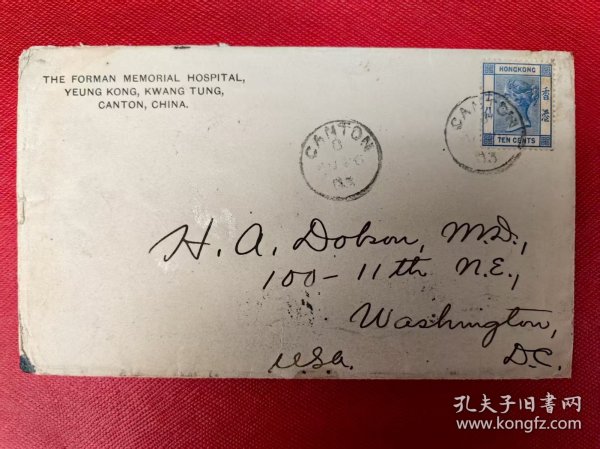 THE FORMAN MEMORIAL HOSPITAL,
YEUNG KONG, KWANG TUNG,
CANTON, CHINA.
HONGKONG
TEN CENTS
CANTON
D
03
CANTON
03
H. A. Dobson, M.D.,
100-11th N.E.,
Washington,
D.C.
USA.
孔夫子旧书网
www.kongfz.com